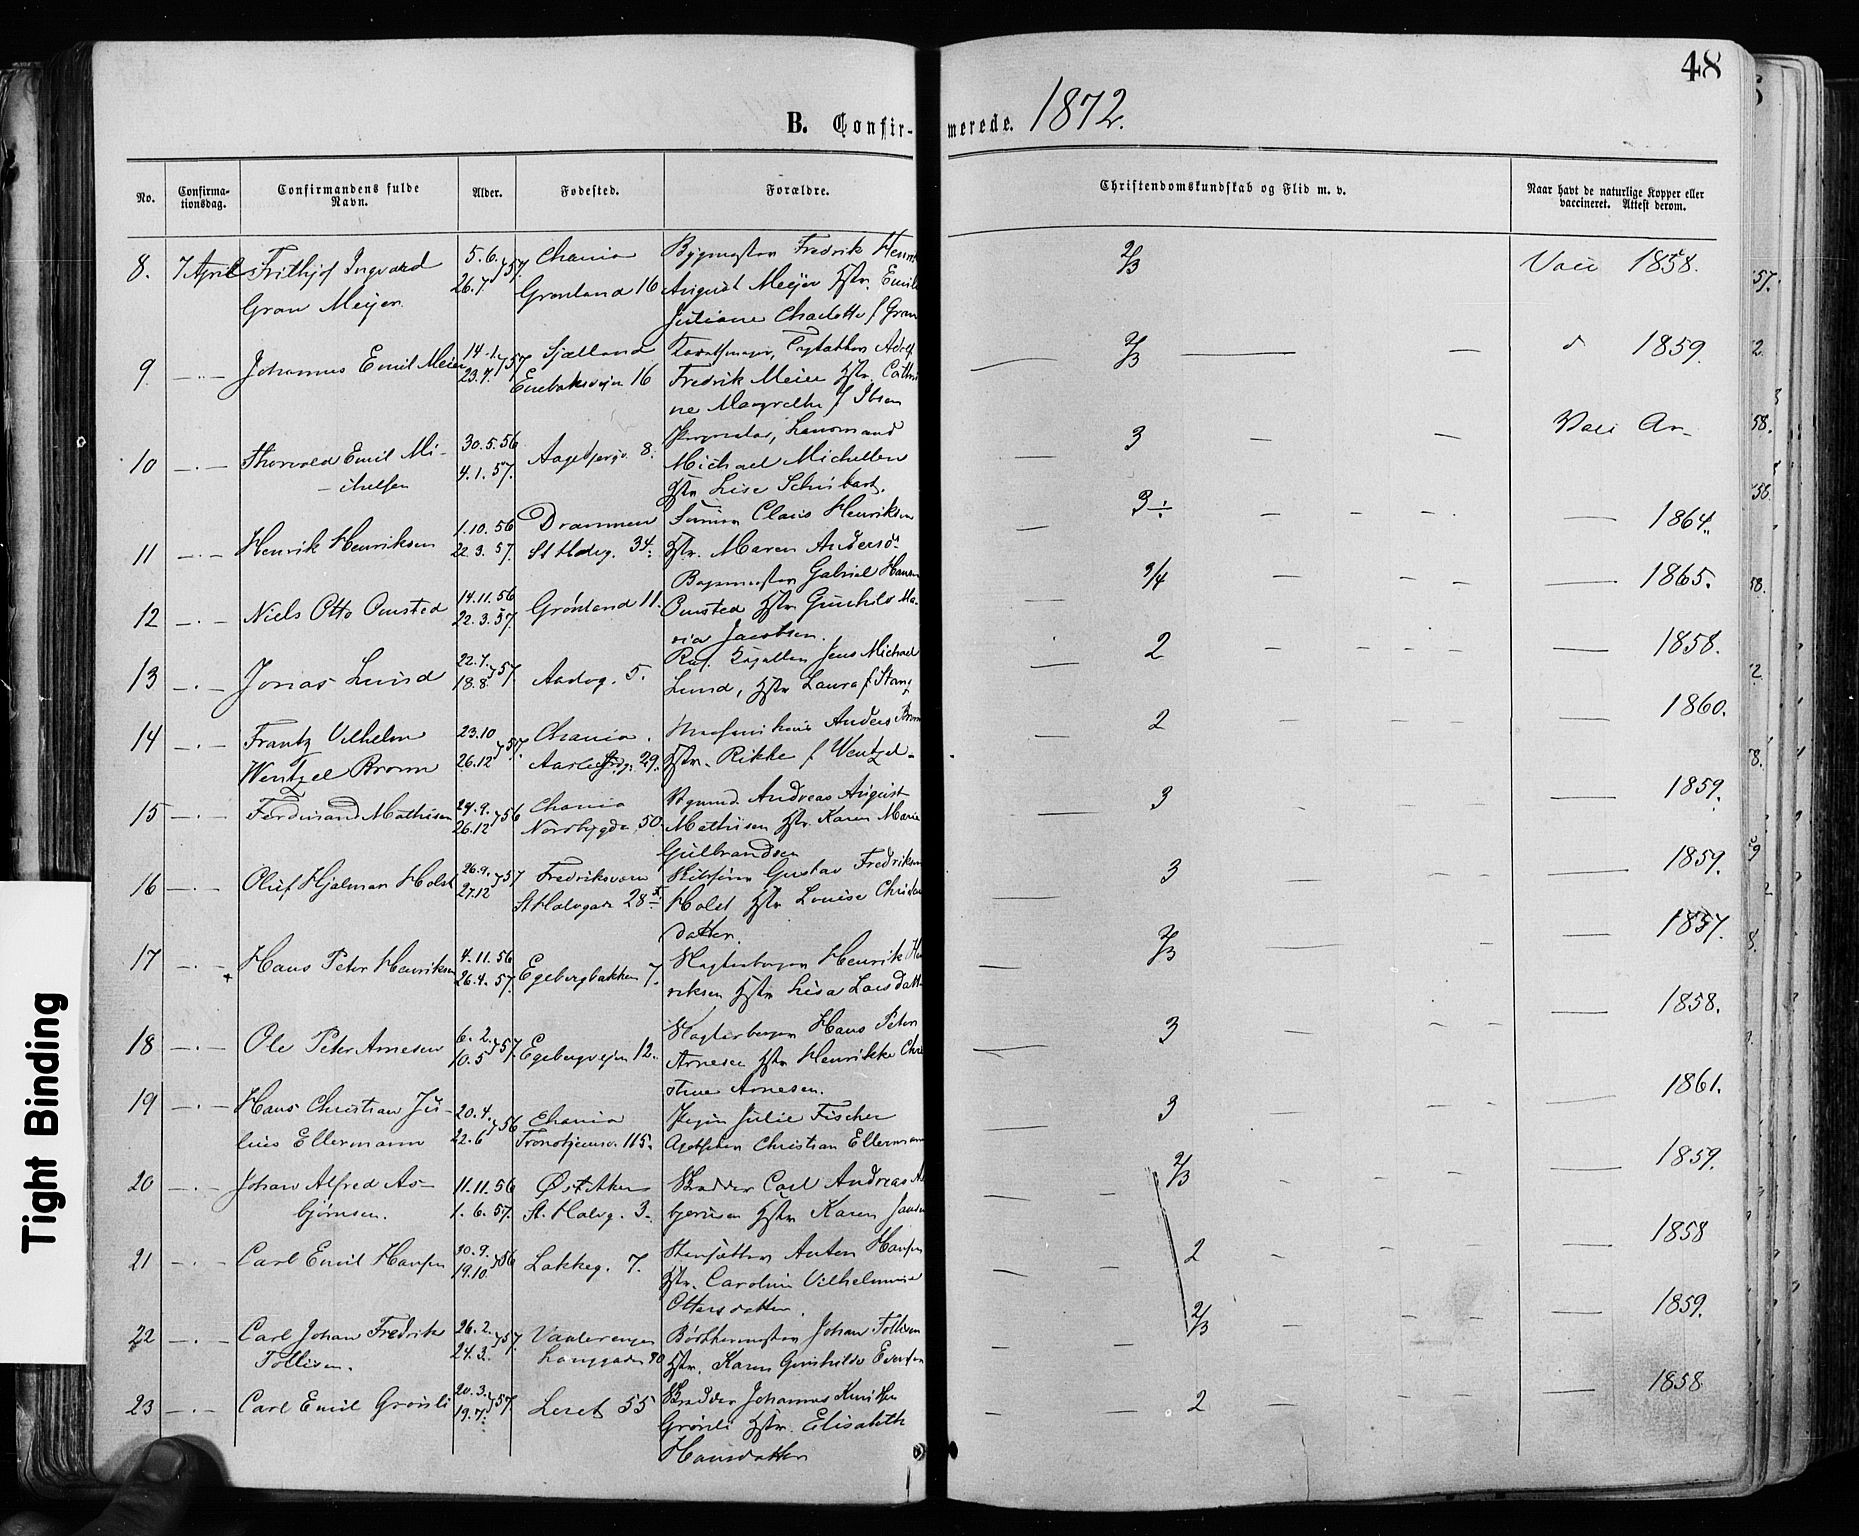 48
B. Confir- merede. 1872.
No.
Confirma-
tionsdag.
Confirmandens fulde
Navn.
Alder.
Fødested.
Forældre.
Christendomskundskab og Flid m. v.
Naar havt de naturlige Kopper eller
vaccineret. Attest derom.
8. 7 April Frithjof Ingvald 5.6. 57. Chania Bygmester Fredrik Henrik 2/3 Vacc 1858.
Gran Meijer. 26.7 Grønland 16 August Meijer Hstr. Emil
Juliane Charlotte f Gran
9 Johannes Emil Meier 14.1. 57 Sjælland Adolf 2/3 1859.
23.7. Enebaksvejen 16 Fredrik Meier Hstr. Cathri
ne Margrethe f Ibsen
10 Thorvald Emil Mi- 30.5.56 8. Lensmand 3 Vacc
chelsen 4.1.57. Michael Michelsen
Hstr Lise
11 Henrik Henriksen 1.10.56 Drammen Claus Henriksen 3÷ 1864.
22.3.57. St Halvg. 34. Hstr. Maren Andersd.
12 Niels Otto Omsted 14.11.56 Grønland 11. Gabriel Hansen 3/4 1865.
22.3.57. Omsted Hstr Gunhild Ma-
ria Jacobsen.
13 Jonas Lund 22.7. 57. 5. Jens Michael 2 1858.
18.8 Lund, Hstr Laura f Stang
14 Frantz Vilhelm 23.10 57. Chania. Anders Bronn 2 1860.
Wentzel Bronn 26.12 29. Hstr. Rikke f Wentzel
15 Ferdinand Mathisen 24.9. 56 Chania Andreas August 3 1859.
26.12 Nordbygda 50. Mathisen Hstr. Karen Marie
Gulbrandsen
16 Oluf Hjalmar Holst 26.9. 57 Fredriksværn Gustav Fredriksen 3 1859.
27.12 St Halvgade 28 Holst Hstr Louise Christen
datter.
17 Hans Peter Henriksen 4.11.56 Egebergbakken 7. Henrik Hen 2/3 1857.
26.4.57. riksen Hstr Lisa Larsdatt
18 Ole Peter Arnesen 6.2. 57. Egebergvejen 12. Hans Peter 3 1858.
10.5 Arnesen Hstr Henrikke Chri
stine Arnesen.
19 Hans Christian Ju- 20.4. 56 Chania Pigen Julie Fischer 3 1861.
lius Ellermann 22.6 Trondhjemsv. 115. Christian Ellermann
20 Johan Alfred As- 11.11.56 Øst Aker Carl Andreas As 2/3 1859.
bjørnsen. 1.6.57. St. Halvg. 3. bjørnsen Hstr Karen
21 Carl Emil Hansen 10.9. 56 Lakkeg. 7. Anton Hansen 2 1858
19.10. Hstr. Caroline Vilhelmine
Ottersdatter.
22 Carl Johan Fredrik 26.2. 57. Vaalerengen Johan Tollisen 2/3 1859.
Tollisen. 24.3. Hstr. Karen Gunhilda Evensen
23 Carl Emil Grønli 20.3. 57. Leret 55 Johannes Knudsen 2 1858
19.7. Grønli Hstr. Elisabeth
Hansdatter
Tight Binding